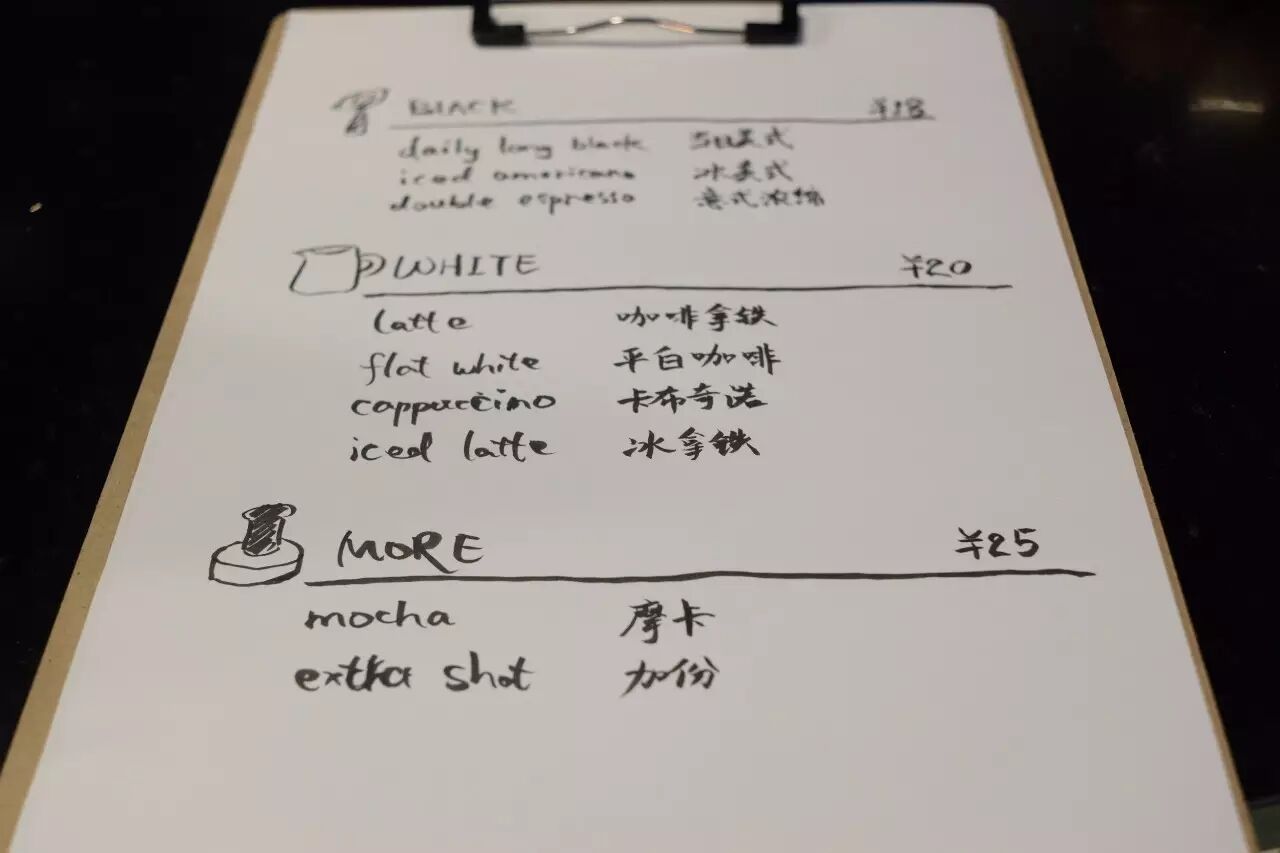 BLACK ¥18
daily long black 每日美式
iced americano 冰美式
double espresso 意式浓缩
WHITE ¥20
latte 咖啡拿铁
flat white 平白咖啡
cappuccino 卡布奇诺
iced latte 冰拿铁
MORE ¥25
mocha 摩卡
extra shot 加份